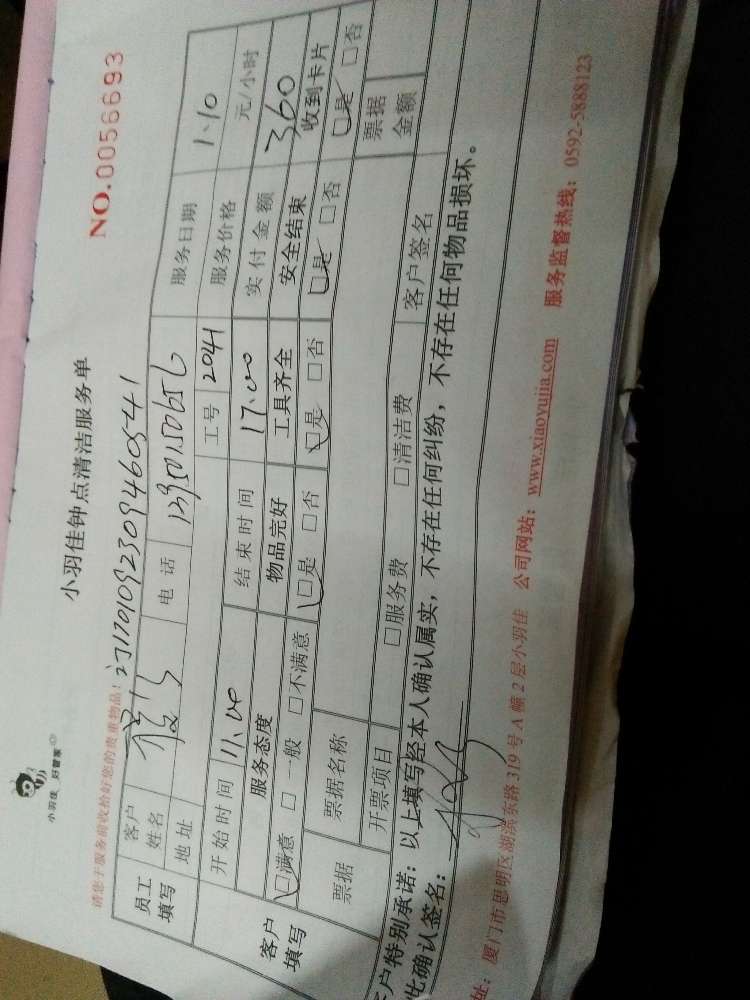 小羽佳 好管家
小羽佳钟点清洁服务单
NO.0056693
请您于服务前收拾好您的贵重物品!
员工填写 客户姓名 电话 服务日期 1.10
地址 工号 2041 服务价格 元/小时
开始时间 11.00 结束时间 17.00 实付金额 360
客户填写 服务态度 物品完好 工具齐全 安全结束 收到卡片
□满意 □一般 □不满意 □是 □否 □是 □否 □是 □否 □是 □否
票据 票据名称 票据金额
开票项目 □服务费 □清洁费 客户签名
户特别承诺:以上填写经本人确认属实,不存在任何纠纷,不存在任何物品损坏。
此确认签名:
址:厦门市思明区湖滨东路319号A幢2层小羽佳 公司网站:www.xiaoyujia.com 服务监督热线:0592-5888123